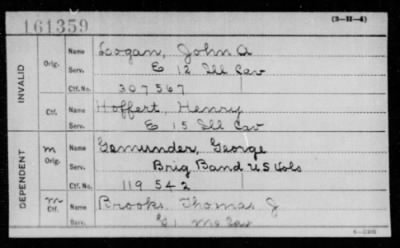 161359
(3-H-4)
INVALID
Orig. Name Logan, John A
Serv. E 12 Ill Cav
Ctf. No. 307567
Ctf. Name Hoffert, Henry
Serv. E 15 Ill Cav
DEPENDENT
m Orig. Name Gemunder, George
Serv. Brig Band U S Vols
Ctf. No. 119542
m Ctf. Name Brooks, Thomas J
Serv. 1 Cav